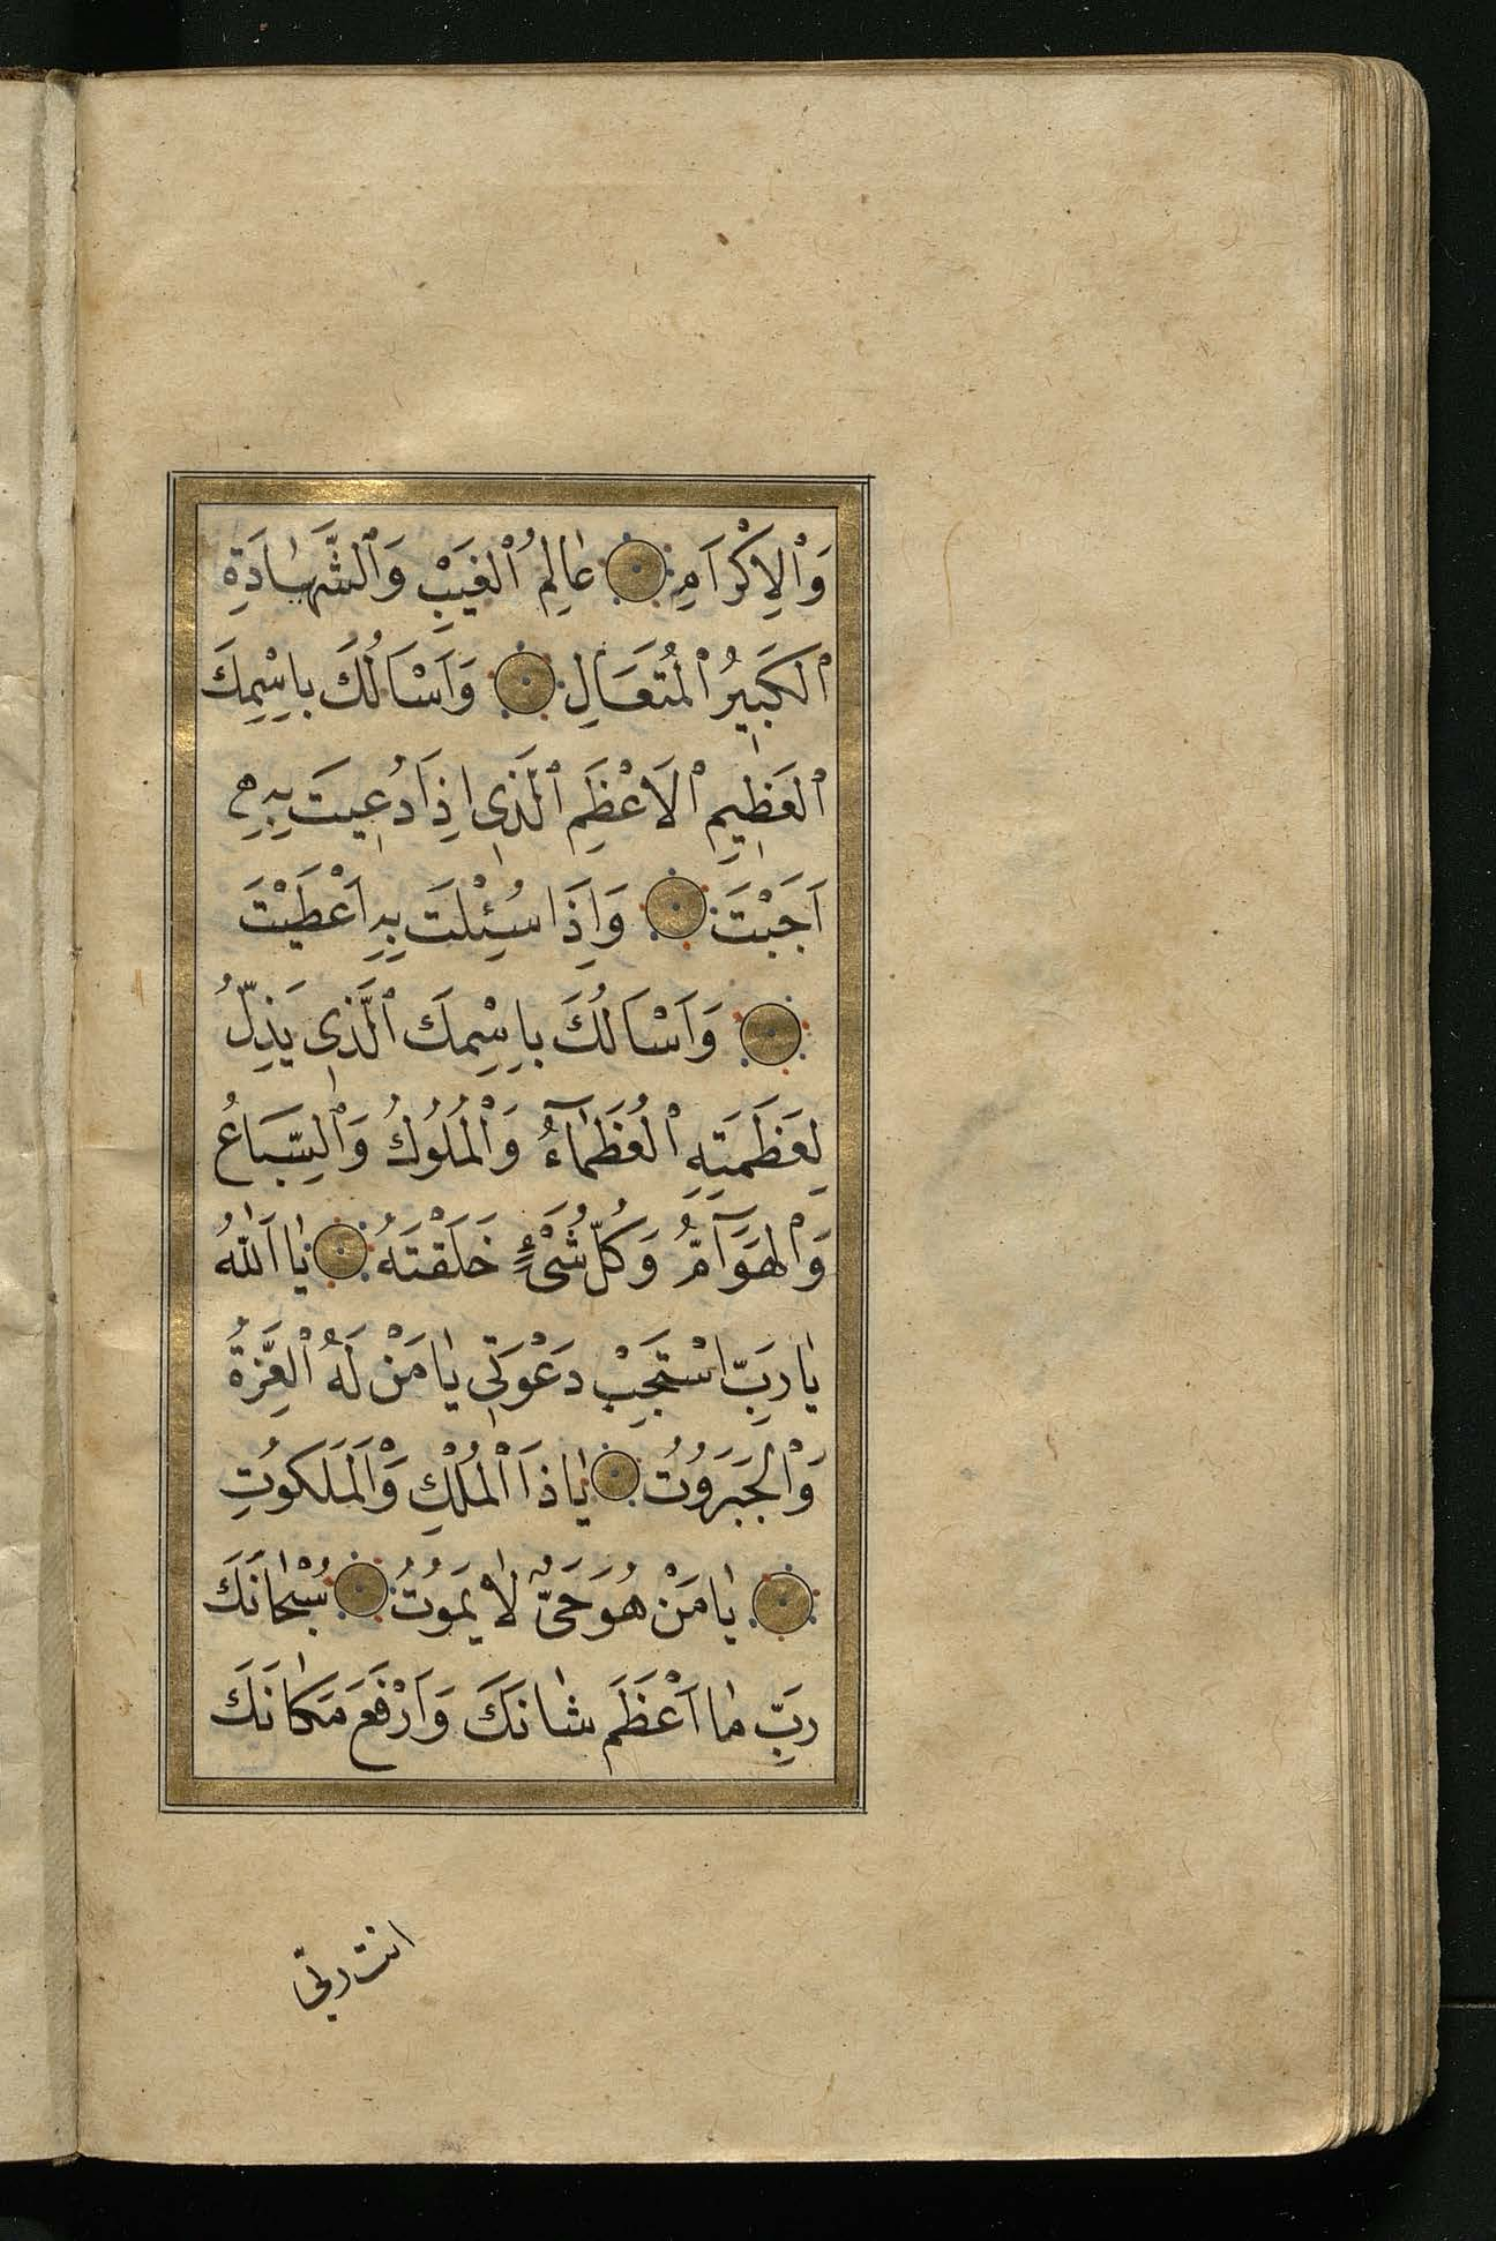 وَالْاِكْرَامِ عَالِمُ الْغَيْبِ وَالشَّهَادَةِ
الْكَبِيرُ الْمُتَعَالِ وَاَسْاَلُكَ بِاِسْمِكَ
الْعَظِيمِ الْاَعْظَمِ الَّذِى اِذَا دُعِيتَ بِهِ
اَجَبْتَ وَاِذَا سُئِلْتَ بِهِ اَعْطَيْتَ
وَاَسْاَلُكَ بِاِسْمِكَ الَّذِى يَذِلُّ
لِعَظَمَتِهِ الْعُظَمَآءُ وَالْمُلُوكُ وَالسِّبَاعُ
وَالْهَوَآمُّ وَكُلُّ شَىْءٍ خَلَقْتَهُ يَا اَللهُ
يَا رَبِّ اسْتَجِبْ دَعْوَتِى يَا مَنْ لَهُ الْعِزَّةُ
وَالْجَبَرُوتُ يَا ذَا الْمُلْكِ وَالْمَلَكُوتِ
يَا مَنْ هُوَ حَىٌّ لَا يَمُوتُ سُبْحَانَكَ
رَبِّ مَا اَعْظَمَ شَانَكَ وَاَرْفَعَ مَكَانَكَ
انت ربّى